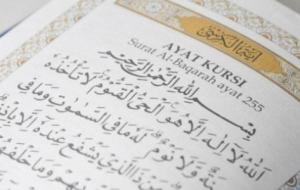 اسماء الحسنى
AYAT KURSI
Surat Al-Baqarah ayat 255
بِسْمِ اللَّهِ الرَّحْمَنِ الرَّحِيمِ
اَللهُ لَا اِلٰهَ اِلَّا هُوَ الْحَيُّ الْقَيُّوْمُ لَا تَأْخُذُهٗ
وَّلَا نَوْمٌ لَهٗ مَا فِى السَّمٰوٰتِ وَمَا فِى
ذَا الَّذِيْ يَشْفَعُ عِنْدَهٗ اِلَّا بِاِذْنِهٖ
وَمَا خَلْفَهُمْ